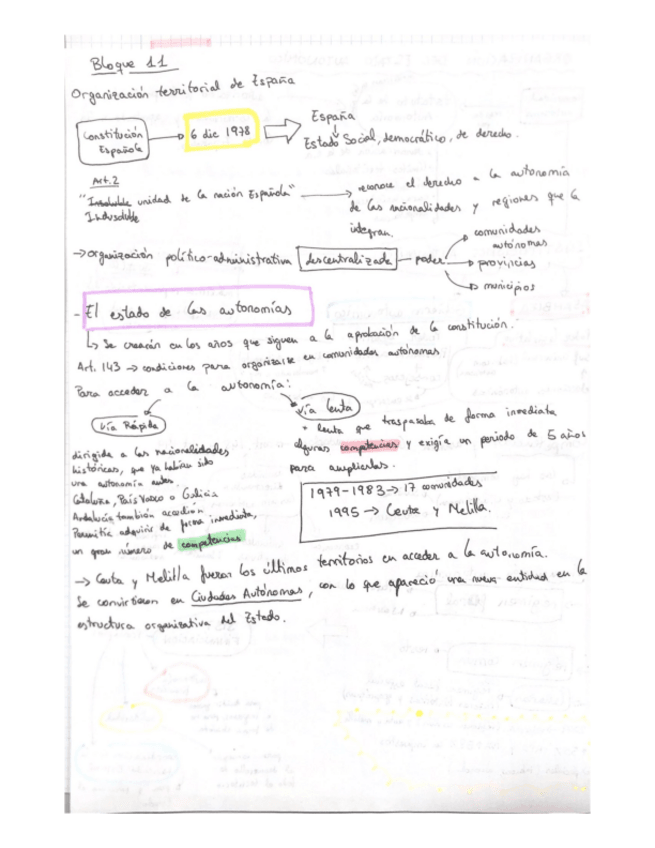 Bloque 11
Organización territorial de España
Constitución Española → 6 dic 1978 ⇒ España
↓
Estado Social, democrático, de derecho.
Art. 2
"Insoluble unidad de la nación Española" → reconoce el derecho a la autonomía
Indisoluble
de las nacionalidades y regiones que la
integran.
→ organización político-administrativa descentralizada — poder
→ comunidades autónomas
→ provincias
→ municipios
- El estado de las autonomías
↳ Se crearán en los años que siguen a la aprobación de la constitución.
Art. 143 → condiciones para organizarse en comunidades autónomas
Para acceder a la autonomía:
Vía Rápida
dirigida a las nacionalidades
históricas, que ya habían sido
una autonomía antes.
Cataluña, País Vasco o Galicia
Andalucía también accedió.
Permitía adquirir de forma inmediata,
un gran número de competencias
Vía lenta
• lenta que traspasaba de forma inmediata
algunas competencias y exigía un periodo de 5 años
para ampliarlas.
1979-1983 → 17 comunidades
1995 → Ceuta y Melilla.
→ Ceuta y Melilla fueron los últimos territorios en acceder a la autonomía.
Se convirtieron en Ciudades Autónomas, con lo que apareció una nueva entidad en la
estructura organizativa del Estado.